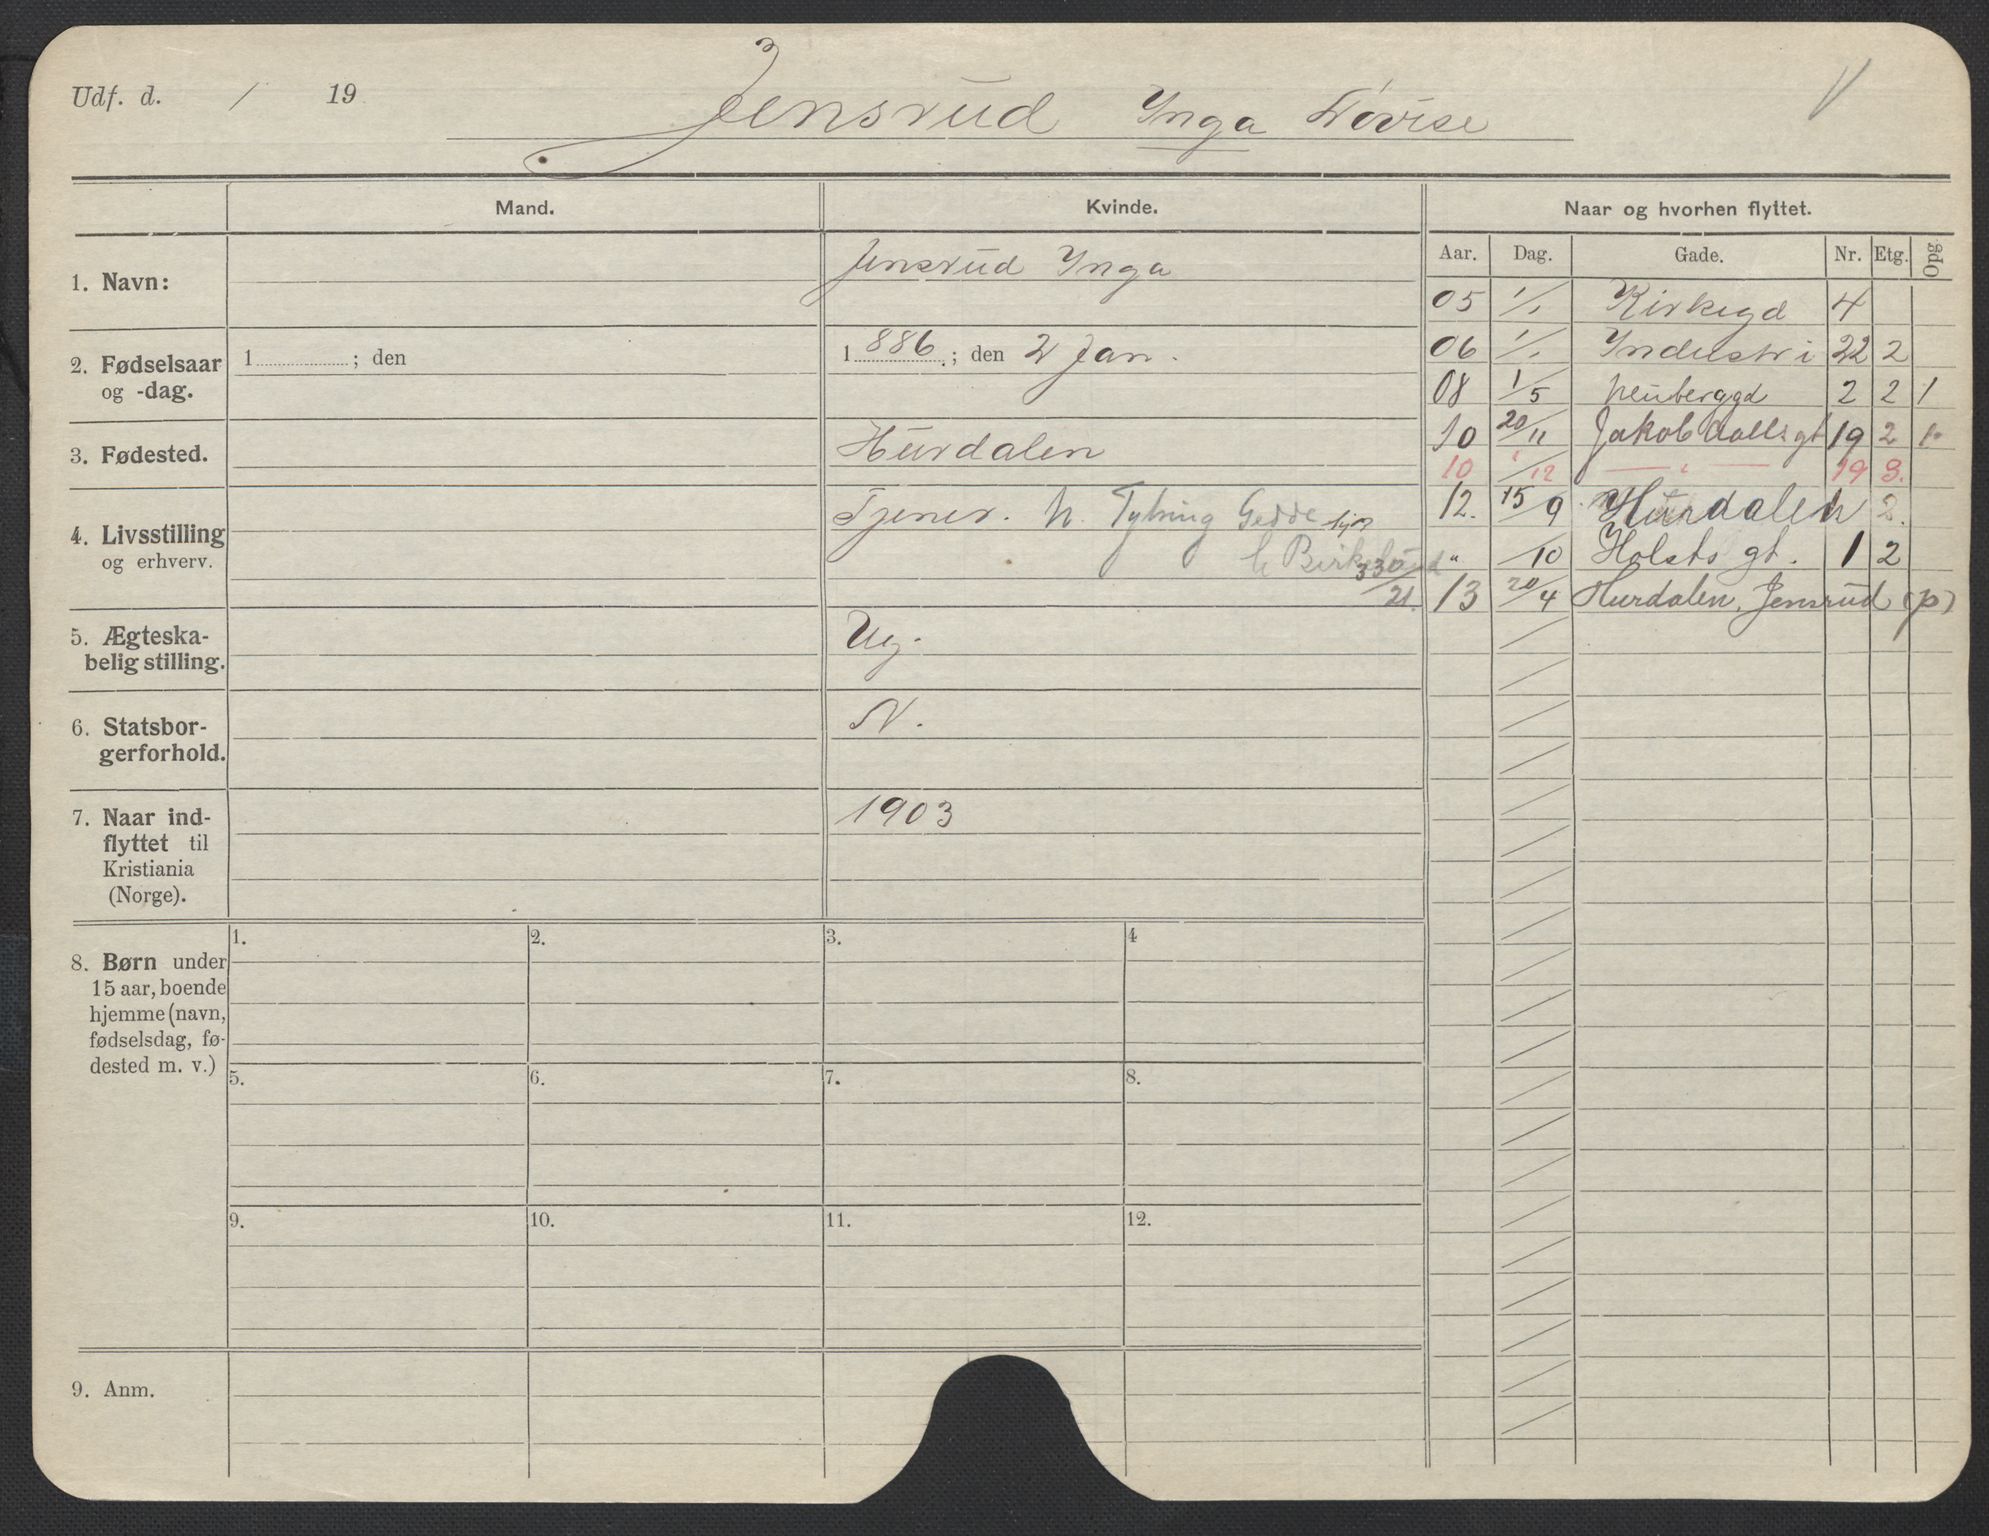 Udf. d. / 19
Jensrud Ynga Lovise
Mand.
Kvinde.
Naar og hvorhen flyttet.
Aar. Dag. Gade. Nr. Etg. Opg.
1. Navn:
Jensrud Ynga
2. Fødselsaar
og -dag.
1 ; den
1886; den 2 Jan.
3. Fødested.
Hurdalen
4. Livsstilling
og erhverv.
Tjener. h. Gedde
h
330/21.
5. Ægteska-
belig stilling.
Ug.
6. Statsbor-
gerforhold.
N.
7. Naar ind-
flyttet til
Kristiania
(Norge).
1903
05 1/1 Kirkegd 4
06 1/1 Industri 22 2
08 1/5 Neuberggd 2 2 1
10 20/11 Jakob Aalls gt 19 2 1.
10 1/12 — " — 19 3.
12. 15/9 Hurdalen 2.
" /10 Holsts gt. 1 2
13 20/4 Hurdalen, Jensrud (p)
8. Børn under
15 aar, boende
hjemme (navn,
fødselsdag, fø-
dested m. v.)
1. 2. 3. 4
5. 6. 7. 8.
9. 10. 11. 12.
9. Anm.